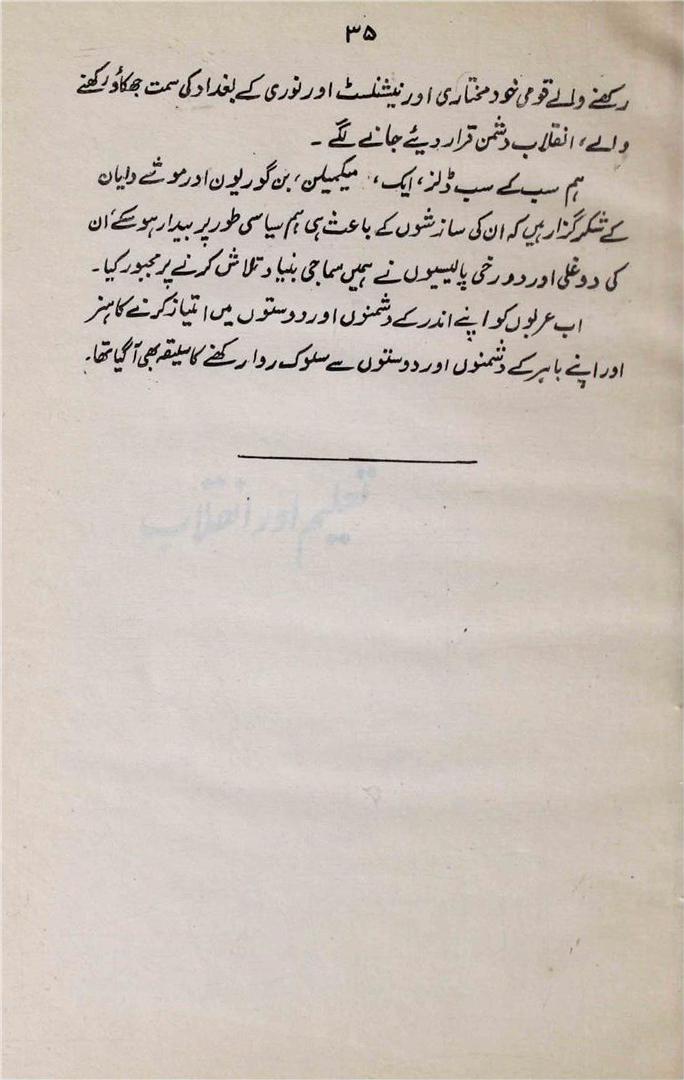 ۳۵
رکھنے والے قومی خود مختاری اور نیشنلسٹ اور نوری کے بغداد کی سمت جھکاؤ رکھنے
والے، انقلاب دشمن قرار دیئے جانے لگے ۔
ہم سب کے سب ڈلز، ایک، میکمیلن، بن گوریون اور موشے دایان
کے شکر گزار ہیں کہ ان کی سازشوں کے باعث ہی ہم سیاسی طور پر بیدار ہو سکے، ان
کی دوغلی اور دو رخی پالیسیوں نے ہمیں سماجی بنیاد تلاش کرنے پر مجبور کیا ۔
اب عربوں کو اپنے اندر کے دشمنوں اور دوستوں میں امتیاز کرنے کا ہنر
اور اپنے باہر کے دشمنوں اور دوستوں سے سلوک روا رکھنے کا سلیقہ بھی آ گیا تھا۔
تعلیم اور انقلاب